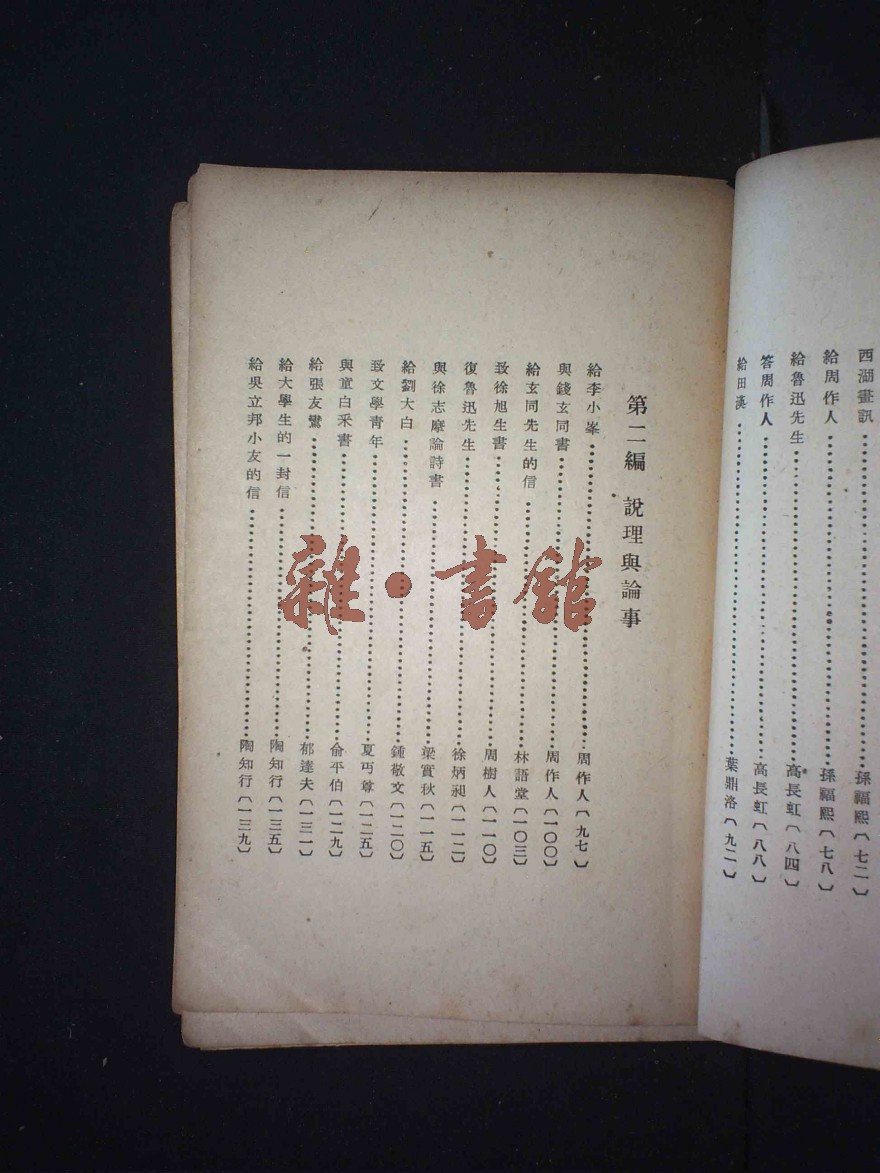 西湖畫訊………孫福熙〔七二〕
給周作人………孫福熙〔七八〕
給魯迅先生………高長虹〔八四〕
答周作人………高長虹〔八八〕
給田漢………葉鼎洛〔九二〕
第二編 說理與論事
給李小峯………周作人〔九七〕
與錢玄同書………周作人〔一〇〇〕
給玄同先生的信………林語堂〔一〇三〕
致徐旭生書………周樹人〔一一〇〕
復魯迅先生………徐炳昶〔一一二〕
與徐志摩論詩書………梁實秋〔一一五〕
給劉大白………鍾敬文〔一二〇〕
致文學青年………夏丏尊〔一二五〕
與童白采書………俞平伯〔一二九〕
給張友鸞………郁達夫〔一三一〕
給大學生的一封信………陶知行〔一三五〕
給吳立邦小友的信………陶知行〔一三九〕
雜·書館